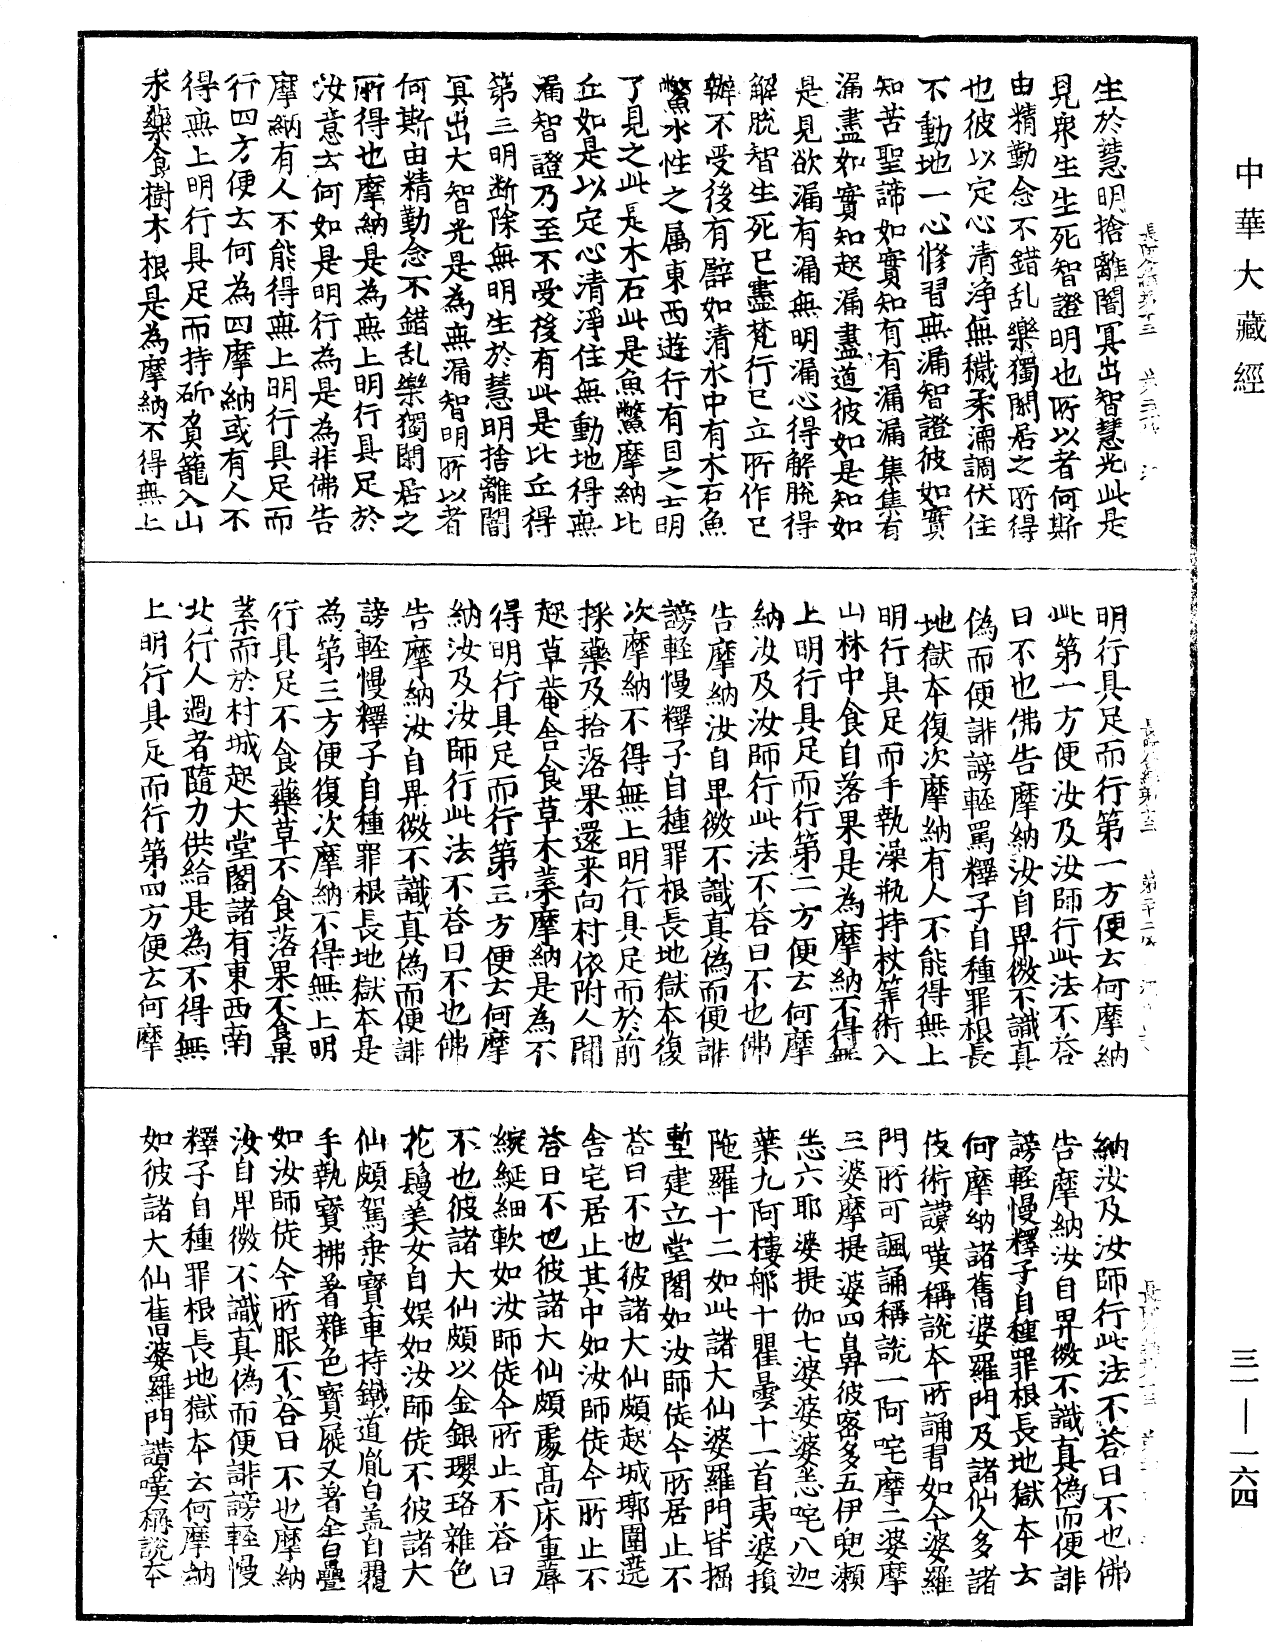 中華大藏經
生於慧明捨離闇冥出智慧光此是
見衆生生死智證明也所以者何斯
由精勤念不錯乱樂獨閑居之所得
也彼以定心清淨無穢柔濡調伏住
不動地一心修習無漏智證彼如實
知苦聖諦如實知有有漏漏集集有
漏盡如實知起漏盡道彼如是知如
是見欲漏有漏無明漏心得解脫得
解脫智生死已盡梵行已立所作已
辦不受後有辟如清水中有木石魚
鱉水性之属東西遊行有目之士明
了見之此是木石此是魚鱉摩納比
丘如是以定心清淨住無動地得無
漏智證乃至不受後有此是比丘得
第三明断除無明生於慧明捨離闇
冥出大智光是為無漏智明所以者
何斯由精勤念不錯乱樂獨閑居之
所得也摩納是為無上明行具足於
汝意云何如是明行為是為非佛告
摩納有人不能得無上明行具足而
行四方便云何為四摩納或有人不
得無上明行具足而持斫負籠入山
求藥食樹木根是為摩納不得無上
明行具足而行第一方便云何摩納
此第一方便汝及汝師行此法不荅
曰不也佛告摩納汝自卑微不識真
偽而便誹謗輕罵釋子自種罪根長
地獄本復次摩納有人不能得無上
明行具足而手執澡瓶持杖筭術入
山林中食自落果是為摩納不得無
上明行具足而行第二方便云何摩
納汝及汝師行此法不荅曰不也佛
告摩納汝自卑微不識真偽而便誹
謗輕慢釋子自種罪根長地獄本復
次摩納不得無上明行具足而於前
採藥及拾落果還来向村依附人間
起草菴舎食草木葉摩納是為不
得明行具足而行第三方便云何摩
納汝及汝師行此法不荅曰不也佛
告摩納汝自卑微不識真偽而便誹
謗輕慢釋子自種罪根長地獄本是
為第三方便復次摩納不得無上明
行具足不食藥草不食落果不食草
葉而於村城起大堂閣諸有東西南
北行人過者隨力供給是為不得無
上明行具足而行第四方便云何摩
納汝及汝師行此法不荅曰不也佛
告摩納汝自卑微不識真偽而便誹
謗輕慢釋子自種罪根長地獄本云
何摩納諸舊婆羅門及諸仙人多諸
伎術讚嘆稱說本所誦習如今婆羅
門所可諷誦稱說一阿咤摩二婆摩
三婆摩提婆四鼻彼密多五伊兜瀬
悉六耶婆提伽七婆婆婆悉咤八迦
葉九阿樓那十瞿曇十一首夷婆損
陁羅十二如此諸大仙婆羅門皆掘
塹建立堂閣如汝師徒今所居止不
荅曰不也彼諸大仙頗起城郭圍遶
舎宅居止其中如汝師徒今所止不
荅曰不也彼諸大仙頗處高床重蓐
綩綖細軟如汝師徒今所止不荅曰
不也彼諸大仙頗以金銀瓔珞雜色
花鬘美女自娱如汝師徒不彼諸大
仙頗駕乘寶車持鐵道胤白盖自覆
手執寶拂著雜色寶屣又著全白疊
如汝師徒今所服不荅曰不也摩納
汝自卑微不識真偽而便誹謗輕慢
釋子自種罪根長地獄本云何摩納
如彼諸大仙舊婆羅門讚嘆稱說本
三一—一六四